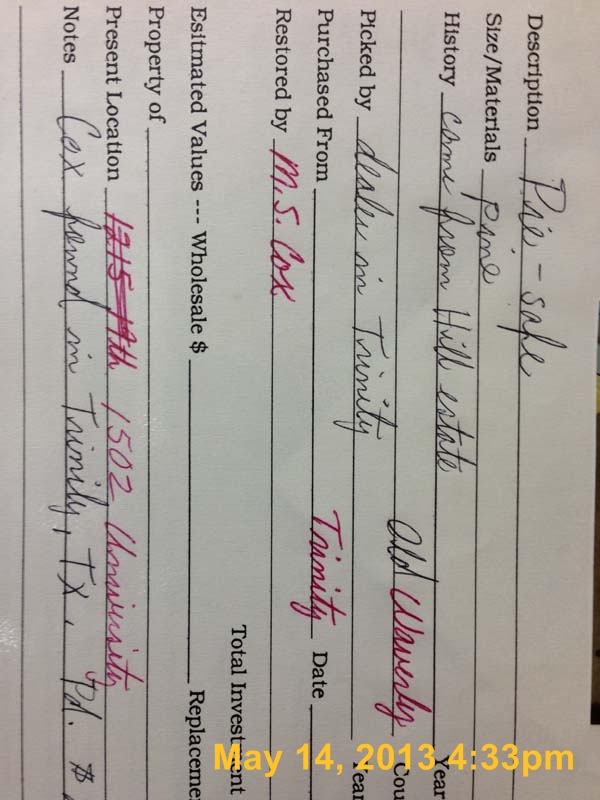 Description Pie-safe
Size/Materials pine
History came from Hill estate Year
Old Waverly Cou
Picked by dealer in Trinity Year
Purchased From Trinity Date
Restored by M.S. Cox
Total Investment
Esitmated Values --- Wholesale $ Replaceme
Property of
Present Location 1215 19th 1502 University
Notes Cox found in Trinity, TX. Pd. $
May 14, 2013 4:33pm